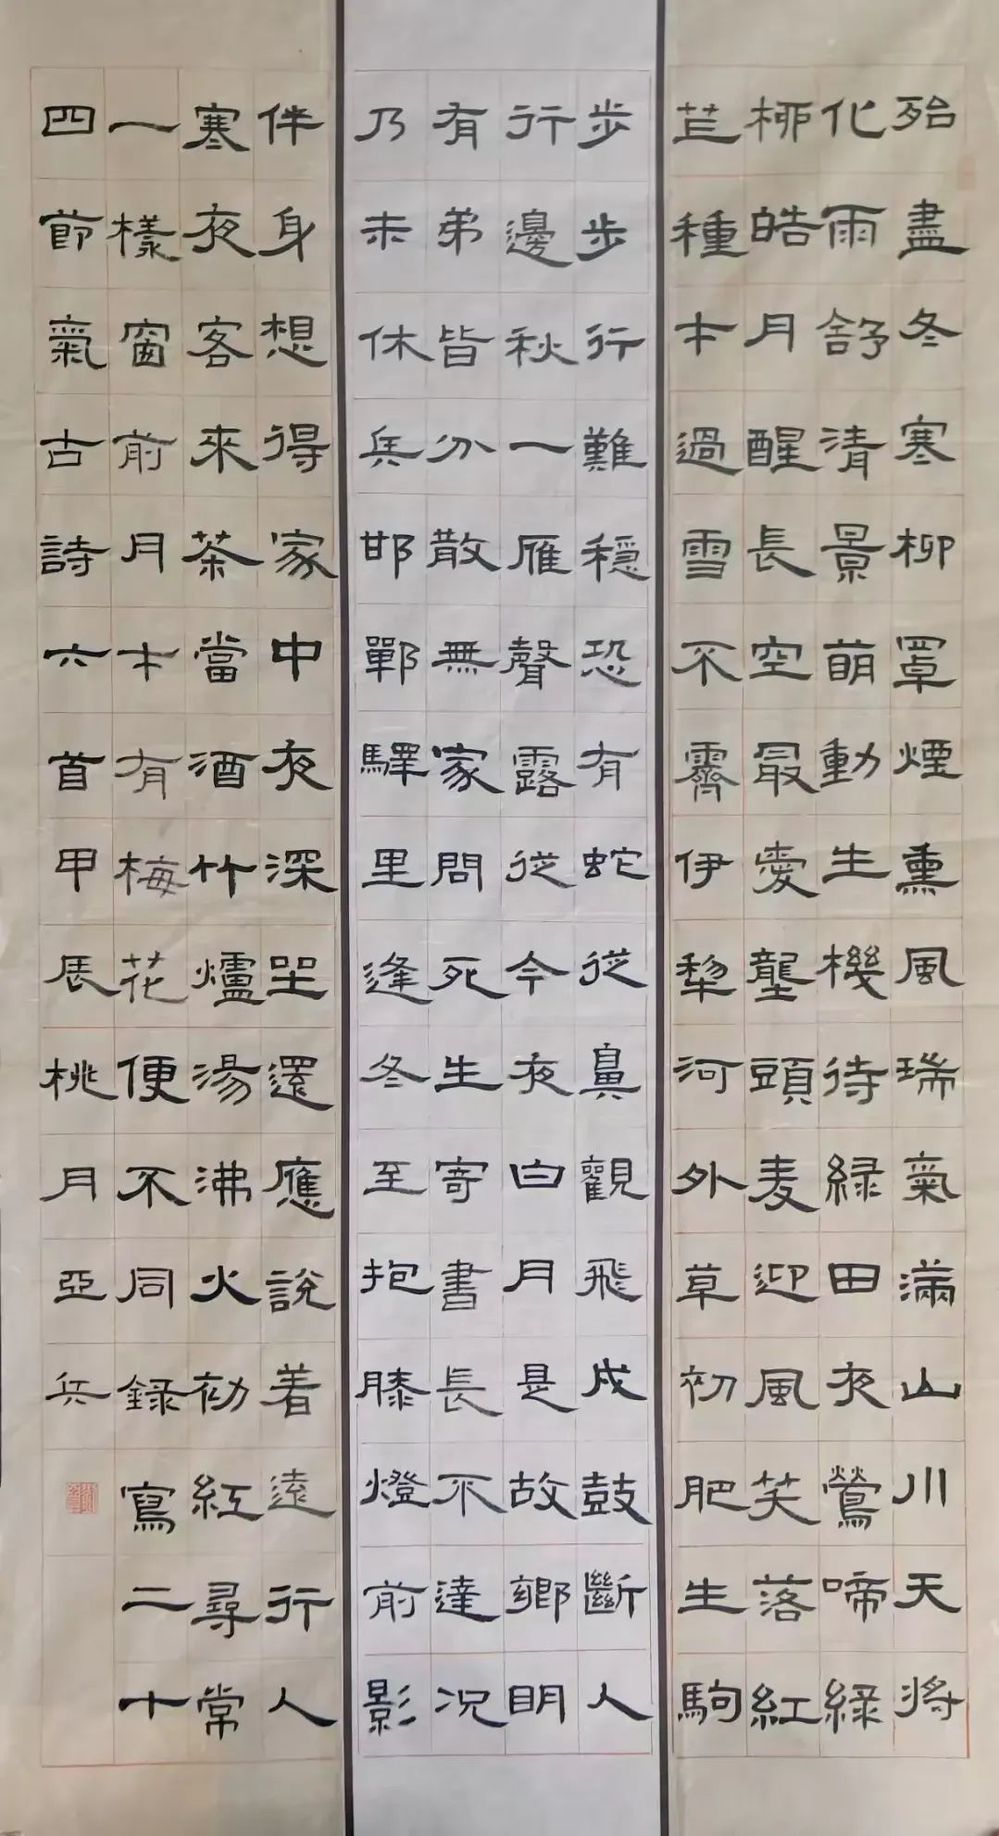 殆盡冬寒柳罩煙熏風瑞氣滿山川天將
化雨舒清景萌動生機待綠田夜鶯啼綠
柳皓月醒長空最愛壟頭麦迎風笑落紅
芒種才過雪不霽伊犁河外草初肥生駒
步步行難穩恐有蛇從鼻觀飛戍鼓斷人
行邊秋一雁聲露從今夜白月是故鄉明
有弟皆分散無家問死生寄書長不達況
乃未休兵邯鄲驛里逢冬至抱膝燈前影
伴身想得家中夜深坐還應說着遠行人
寒夜客來茶當酒竹爐湯沸火初紅尋常
一樣窗前月才有梅花便不同錄寫二十
四節氣古詩六首甲辰桃月亞兵